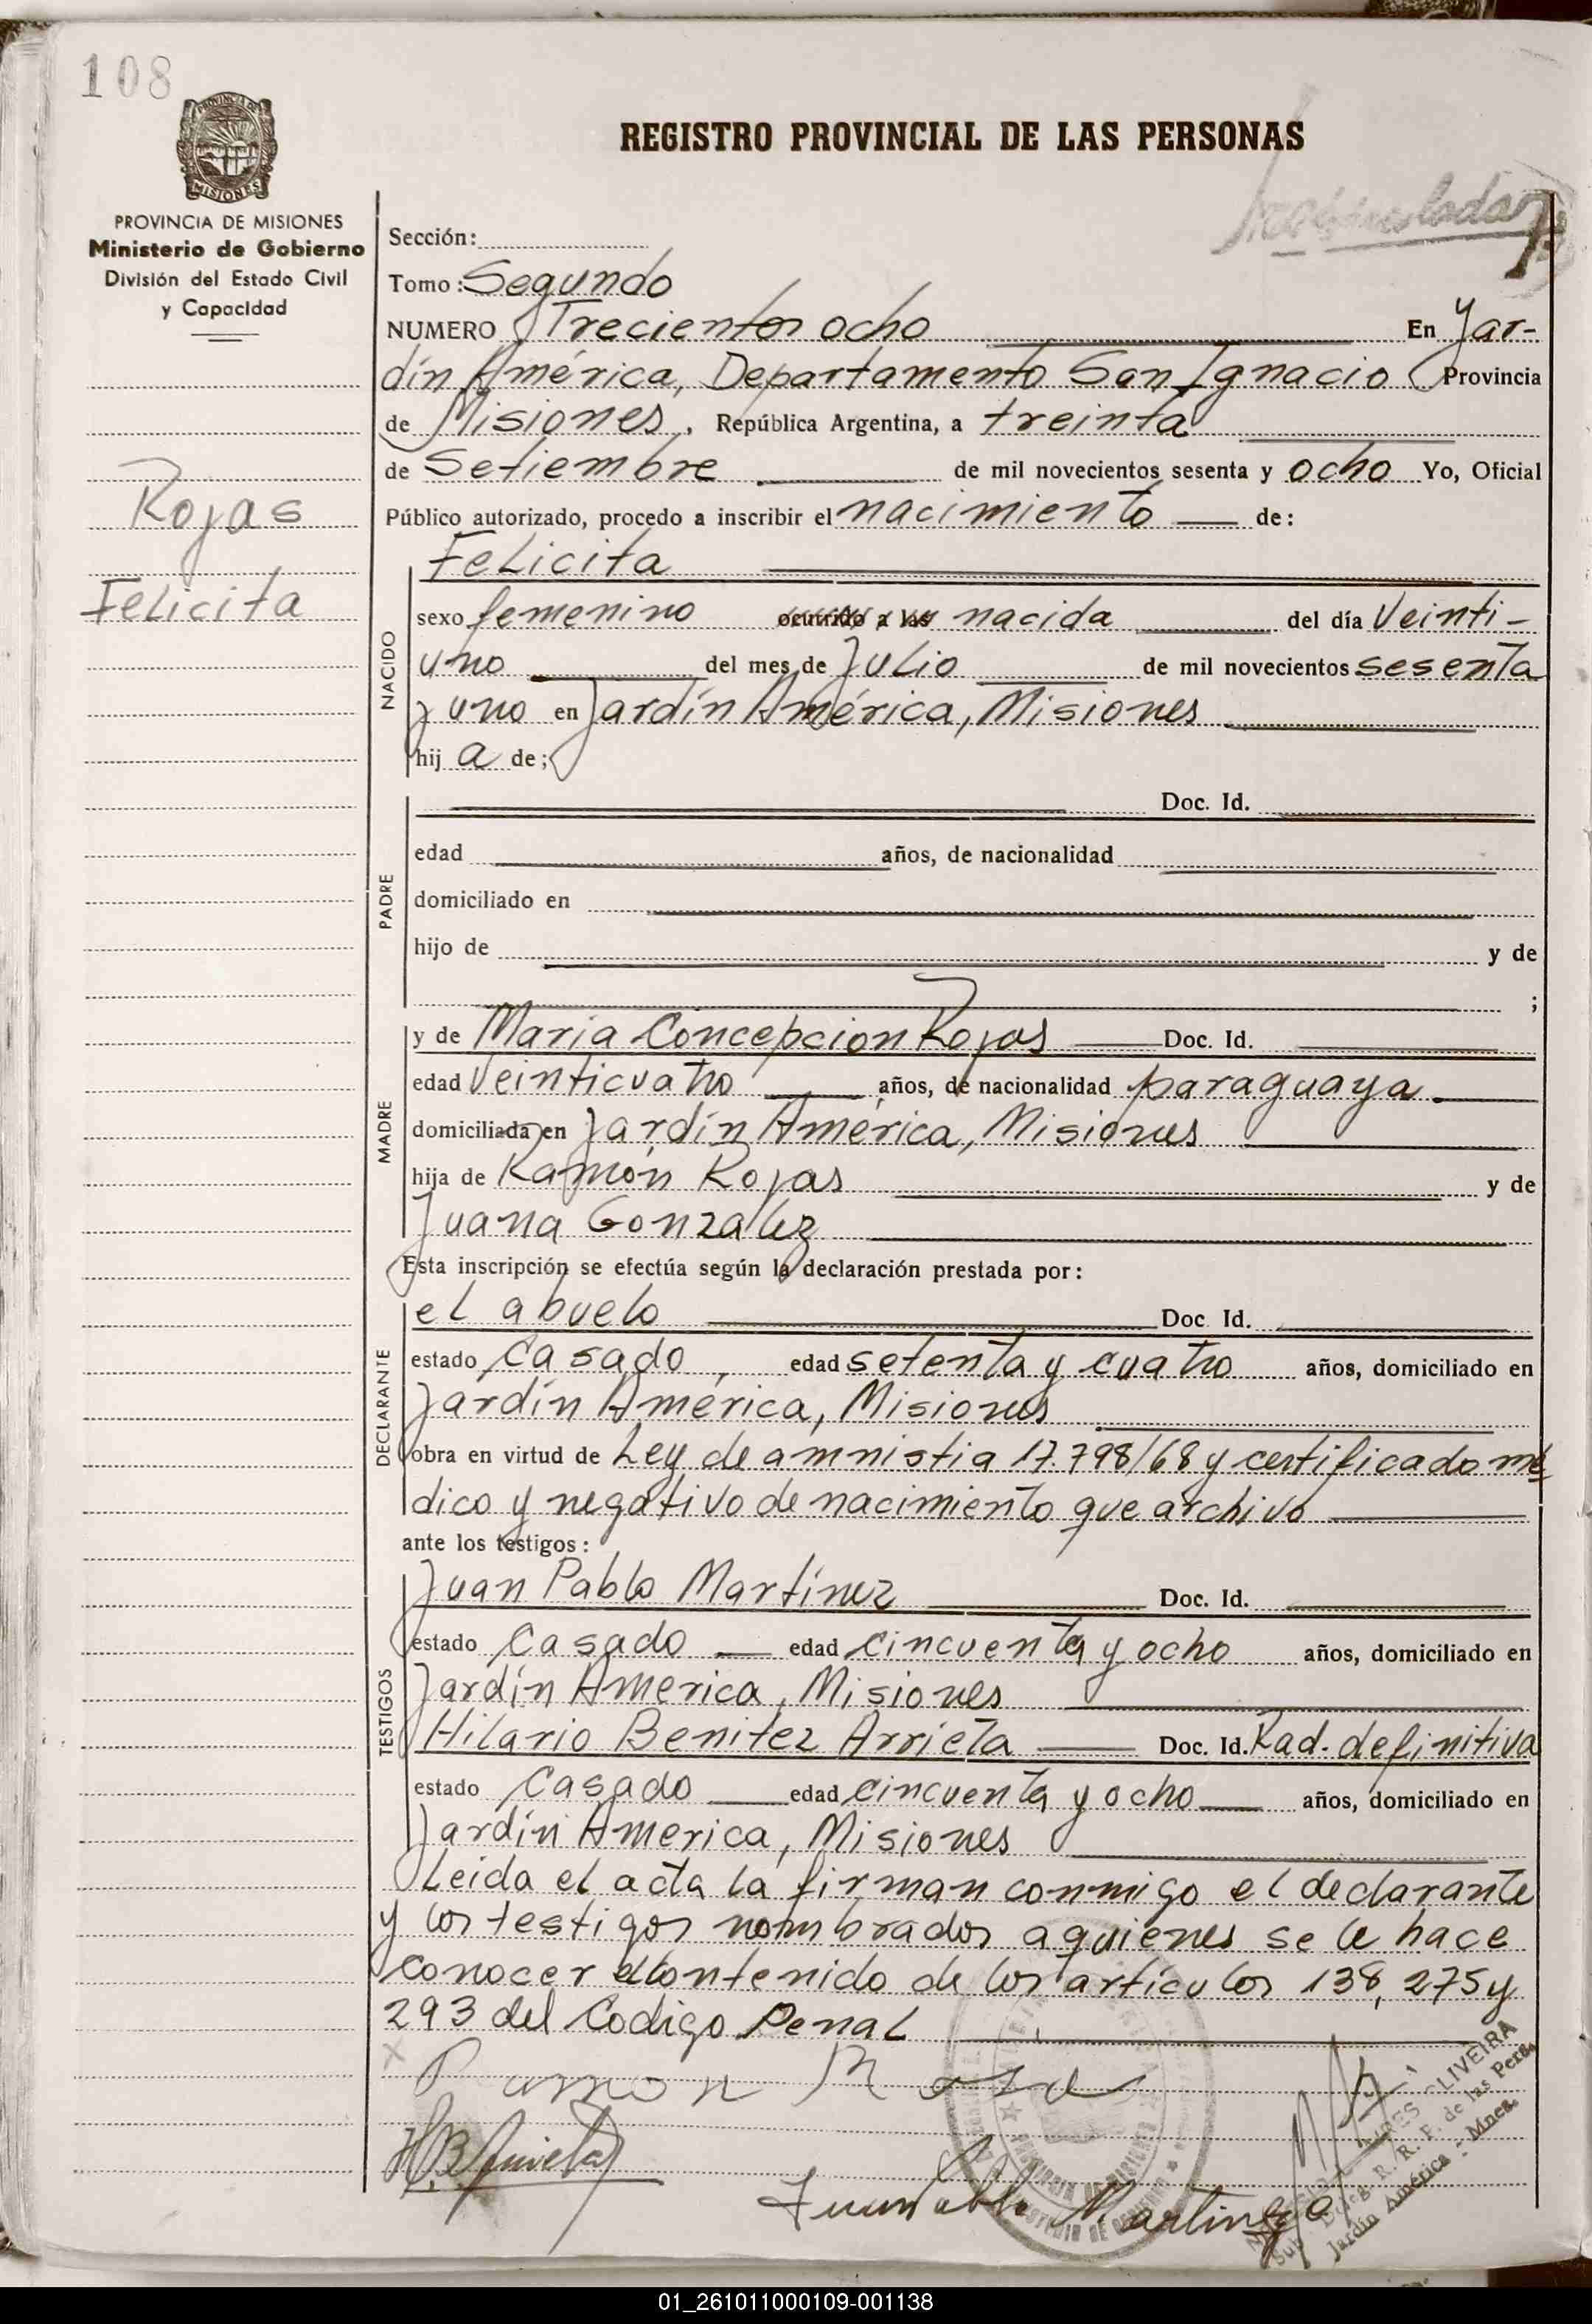 108
PROVINCIA DE MISIONES
Ministerio de Gobierno
División del Estado Civil
y Capacidad
Rojas
Felicita
REGISTRO PROVINCIAL DE LAS PERSONAS
Sección:
Tomo: Segundo
NUMERO Trecientos ocho En Jar-
dín América, Departamento San Ignacio Provincia
de Misiones, República Argentina, a treinta
de Setiembre de mil novecientos sesenta y ocho Yo, Oficial
Público autorizado, procedo a inscribir el nacimiento de:
NACIDO
Felicita
sexo femenino ocurrido a las nacida del día Veinti-
uno del mes de Julio de mil novecientos sesenta
y uno en Jardín América, Misiones
hij a de;
PADRE
Doc. Id.
edad años, de nacionalidad
domiciliado en
hijo de y de
;
MADRE
y de Maria Concepcion Rojas Doc. Id.
edad Veinticuatro años, de nacionalidad paraguaya
domiciliada en Jardín América, Misiones
hija de Ramón Rojas y de
Juana Gonzalez
Esta inscripción se efectúa según la declaración prestada por:
DECLARANTE
el abuelo Doc. Id.
estado Casado, edad setenta y cuatro años, domiciliado en
Jardín América, Misiones
obra en virtud de Ley de amnistia 17.798/68 y certificado mé
dico y negativo de nacimiento que archivo
ante los testigos:
TESTIGOS
Juan Pablo Martínez Doc. Id.
estado Casado edad cincuenta y ocho años, domiciliado en
Jardín America, Misiones
Hilario Benitez Arrieta Doc. Id. Rad. definitiva
estado Casado edad cincuenta y ocho años, domiciliado en
Jardín America, Misiones
Leida el acta la firman conmigo el declarante
y los testigos nombrados a quienes se le hace
conocer el contenido de los artículos 138, 275 y
293 del Codigo Penal
Ramon Rojas
H.B. Arrieta
Juan Pablo Martinez
OLIVEIRA
Sub Deleg. R. P. de las Pers.
Jardín América - Mnes.
01_261011000109-001138